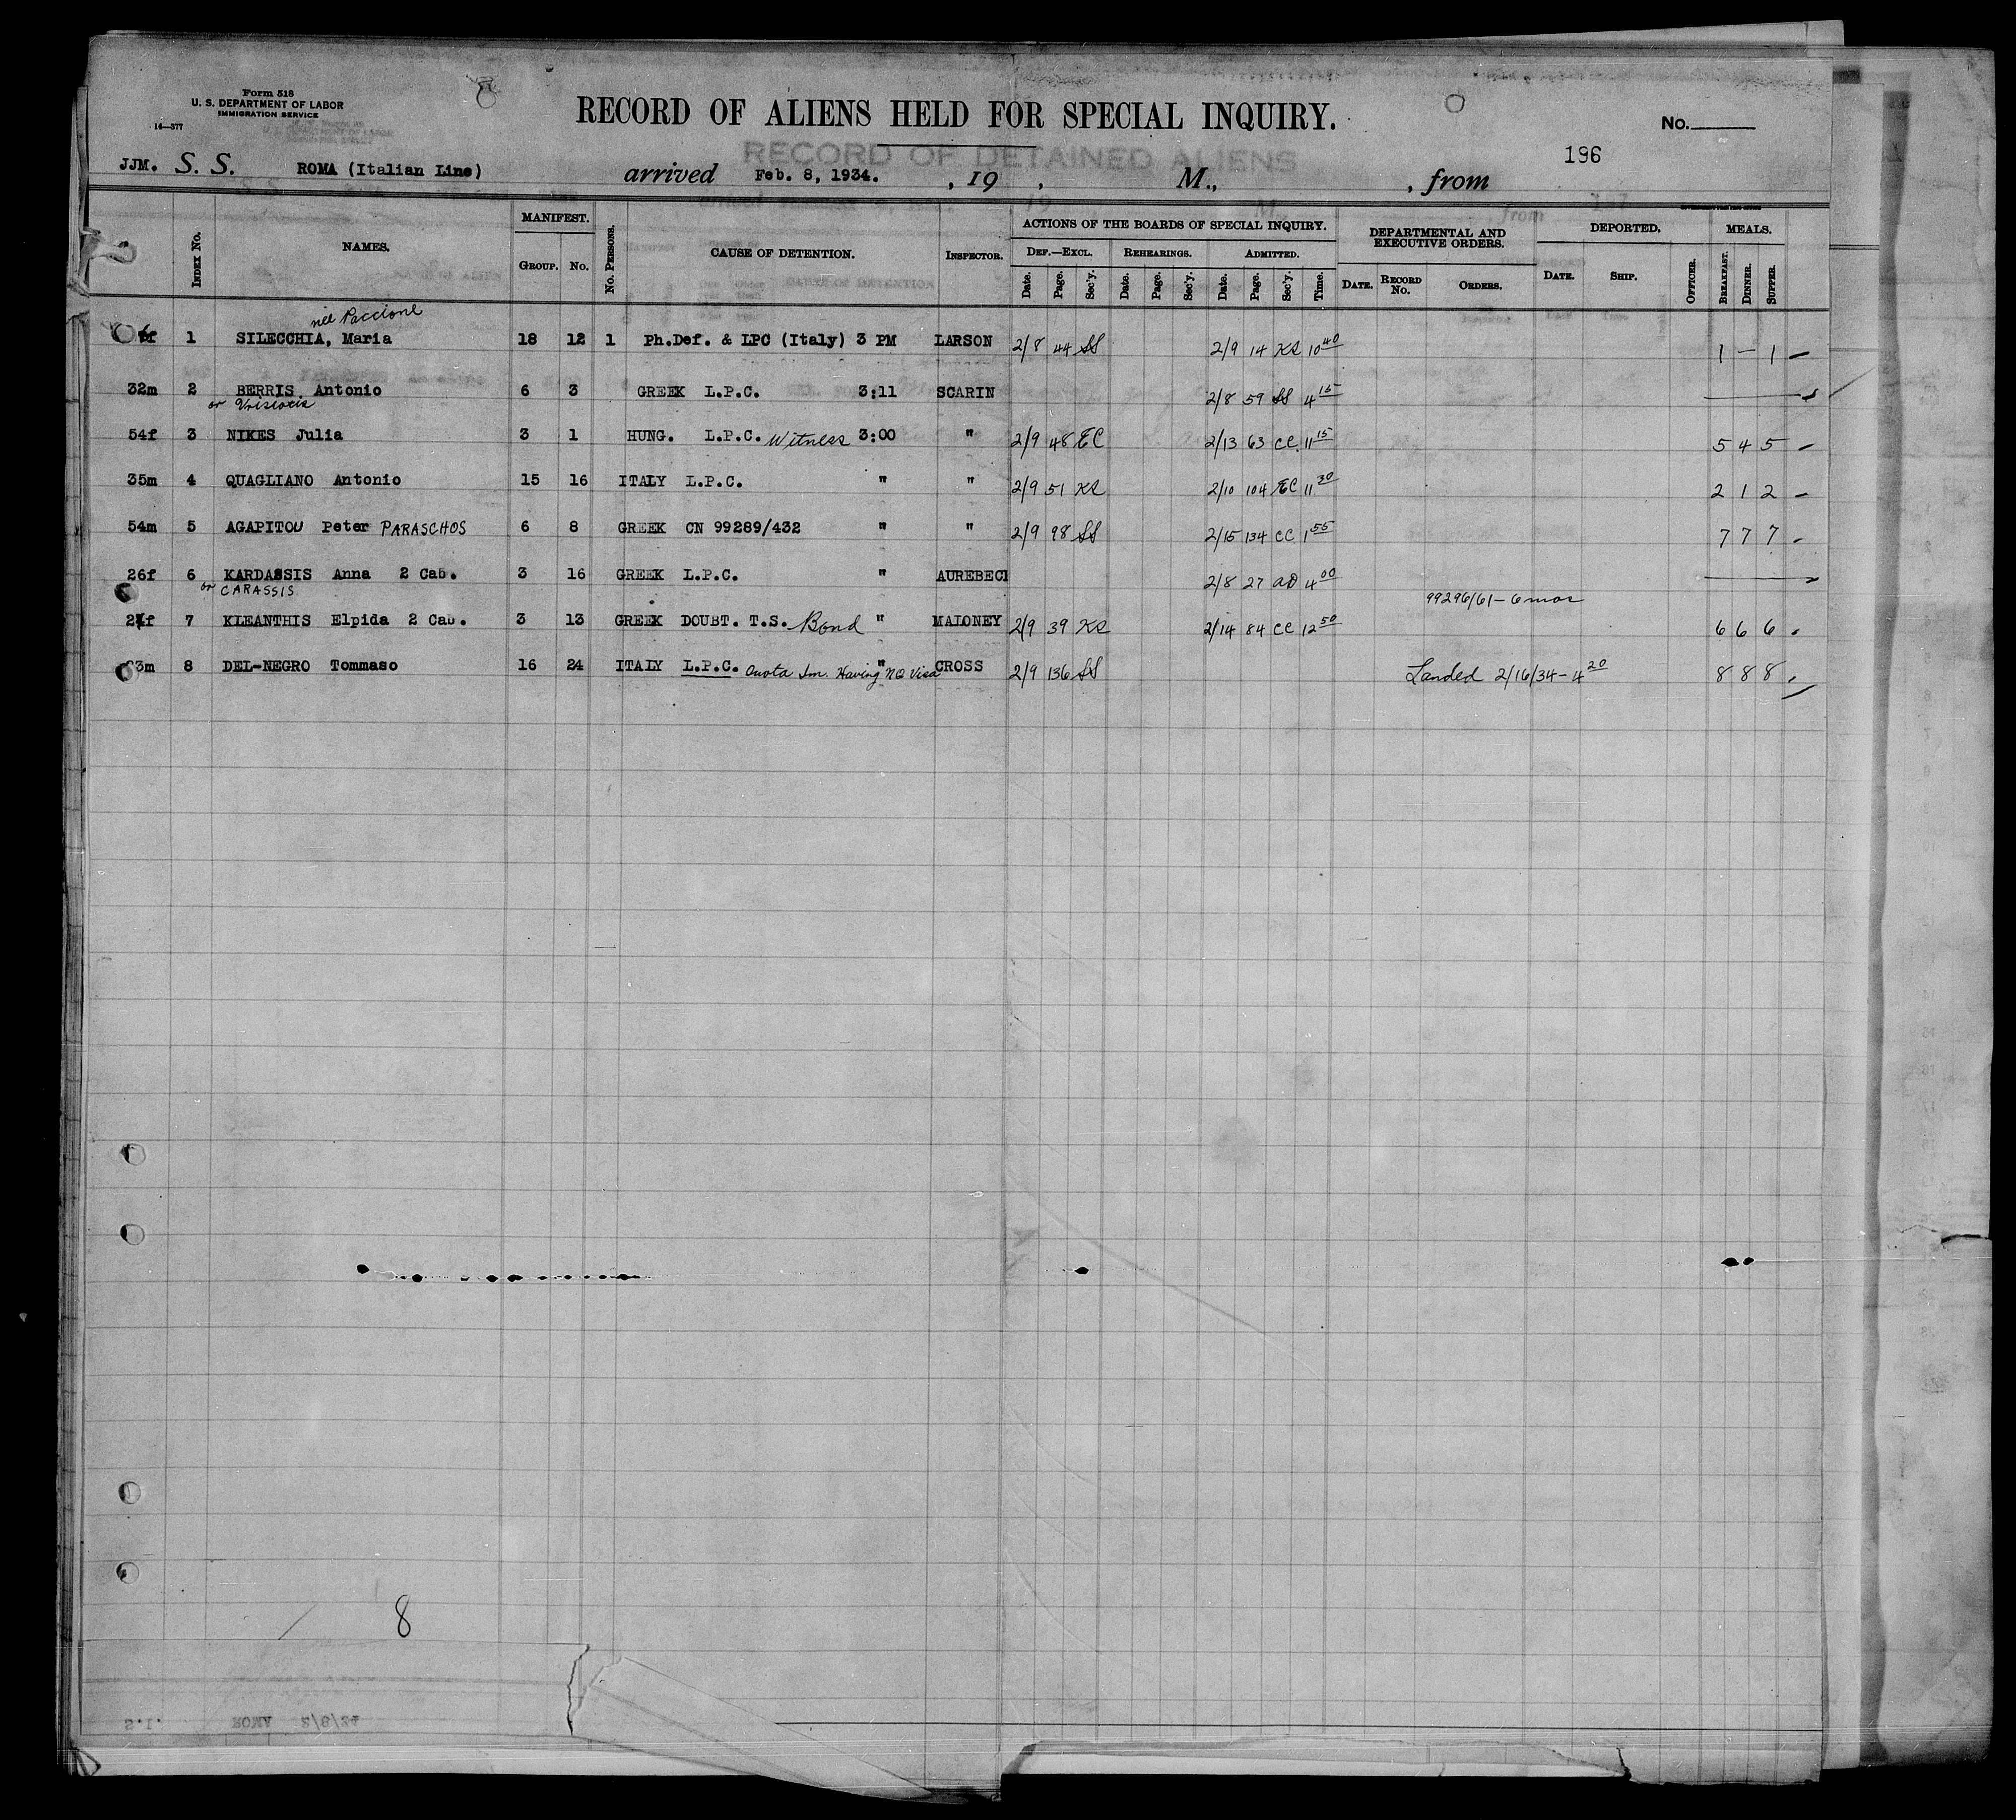 Form 518
U. S. DEPARTMENT OF LABOR
IMMIGRATION SERVICE
14—377
RECORD OF ALIENS HELD FOR SPECIAL INQUIRY.
No.
RECORD OF DETAINED ALIENS
196
JJM. S. S. ROMA (Italian Line) arrived Feb. 8, 1934. , 19 , M., , from
INDEX No. NAMES. MANIFEST. GROUP. No. No. PERSONS. CAUSE OF DETENTION. INSPECTOR. ACTIONS OF THE BOARDS OF SPECIAL INQUIRY. DEPARTMENTAL AND EXECUTIVE ORDERS. DEPORTED. MEALS.
DEF.—EXCL. REHEARINGS. ADMITTED.
Date. Page. Sec'y. Date. Page. Sec'y. Date. Page. Sec'y. Time. DATE. RECORD No. ORDERS. DATE. SHIP. OFFICER. BREAKFAST. DINNER. SUPPER.
née Paccione
f 1 SILECCHIA, Maria 18 12 1 Ph.Def. & LPC (Italy) 3 PM LARSON 2/8 44 SS 2/9 14 KS 10 40 1 — 1 —
32m 2 BERRIS Antonio 6 3 GREEK L.P.C. 3:11 SCARIN 2/8 59 SS 4 15
or
54f 3 NIKES Julia 3 1 HUNG. L.P.C. Witness 3:00 " 2/9 48 EC 2/13 63 CC 11 15 5 4 5 —
35m 4 QUAGLIANO Antonio 15 16 ITALY L.P.C. " " 2/9 51 KS 2/10 104 EC 11 30 2 1 2 —
54m 5 AGAPITOU Peter PARASCHOS 6 8 GREEK CN 99289/432 " " 2/9 98 SS 2/15 134 CC 1 55 7 7 7 -
26f 6 KARDASSIS Anna 2 Cab. 3 16 GREEK L.P.C. " AUREBECK 2/8 27 AD 4 00
or CARASSIS
99296/61 - 6 mos
f 7 KLEANTHIS Elpida 2 Cab. 3 13 GREEK DOUBT. T.S. Bond " MALONEY 2/9 39 KS 2/14 84 CC 12 50 6 6 6 -
23m 8 DEL-NEGRO Tommaso 16 24 ITALY L.P.C. Quota Im. Having NQ Visa " CROSS 2/9 136 SS Landed 2/16/34 - 4 20 8 8 8 -
8
S.I. ROMA 2/8/34